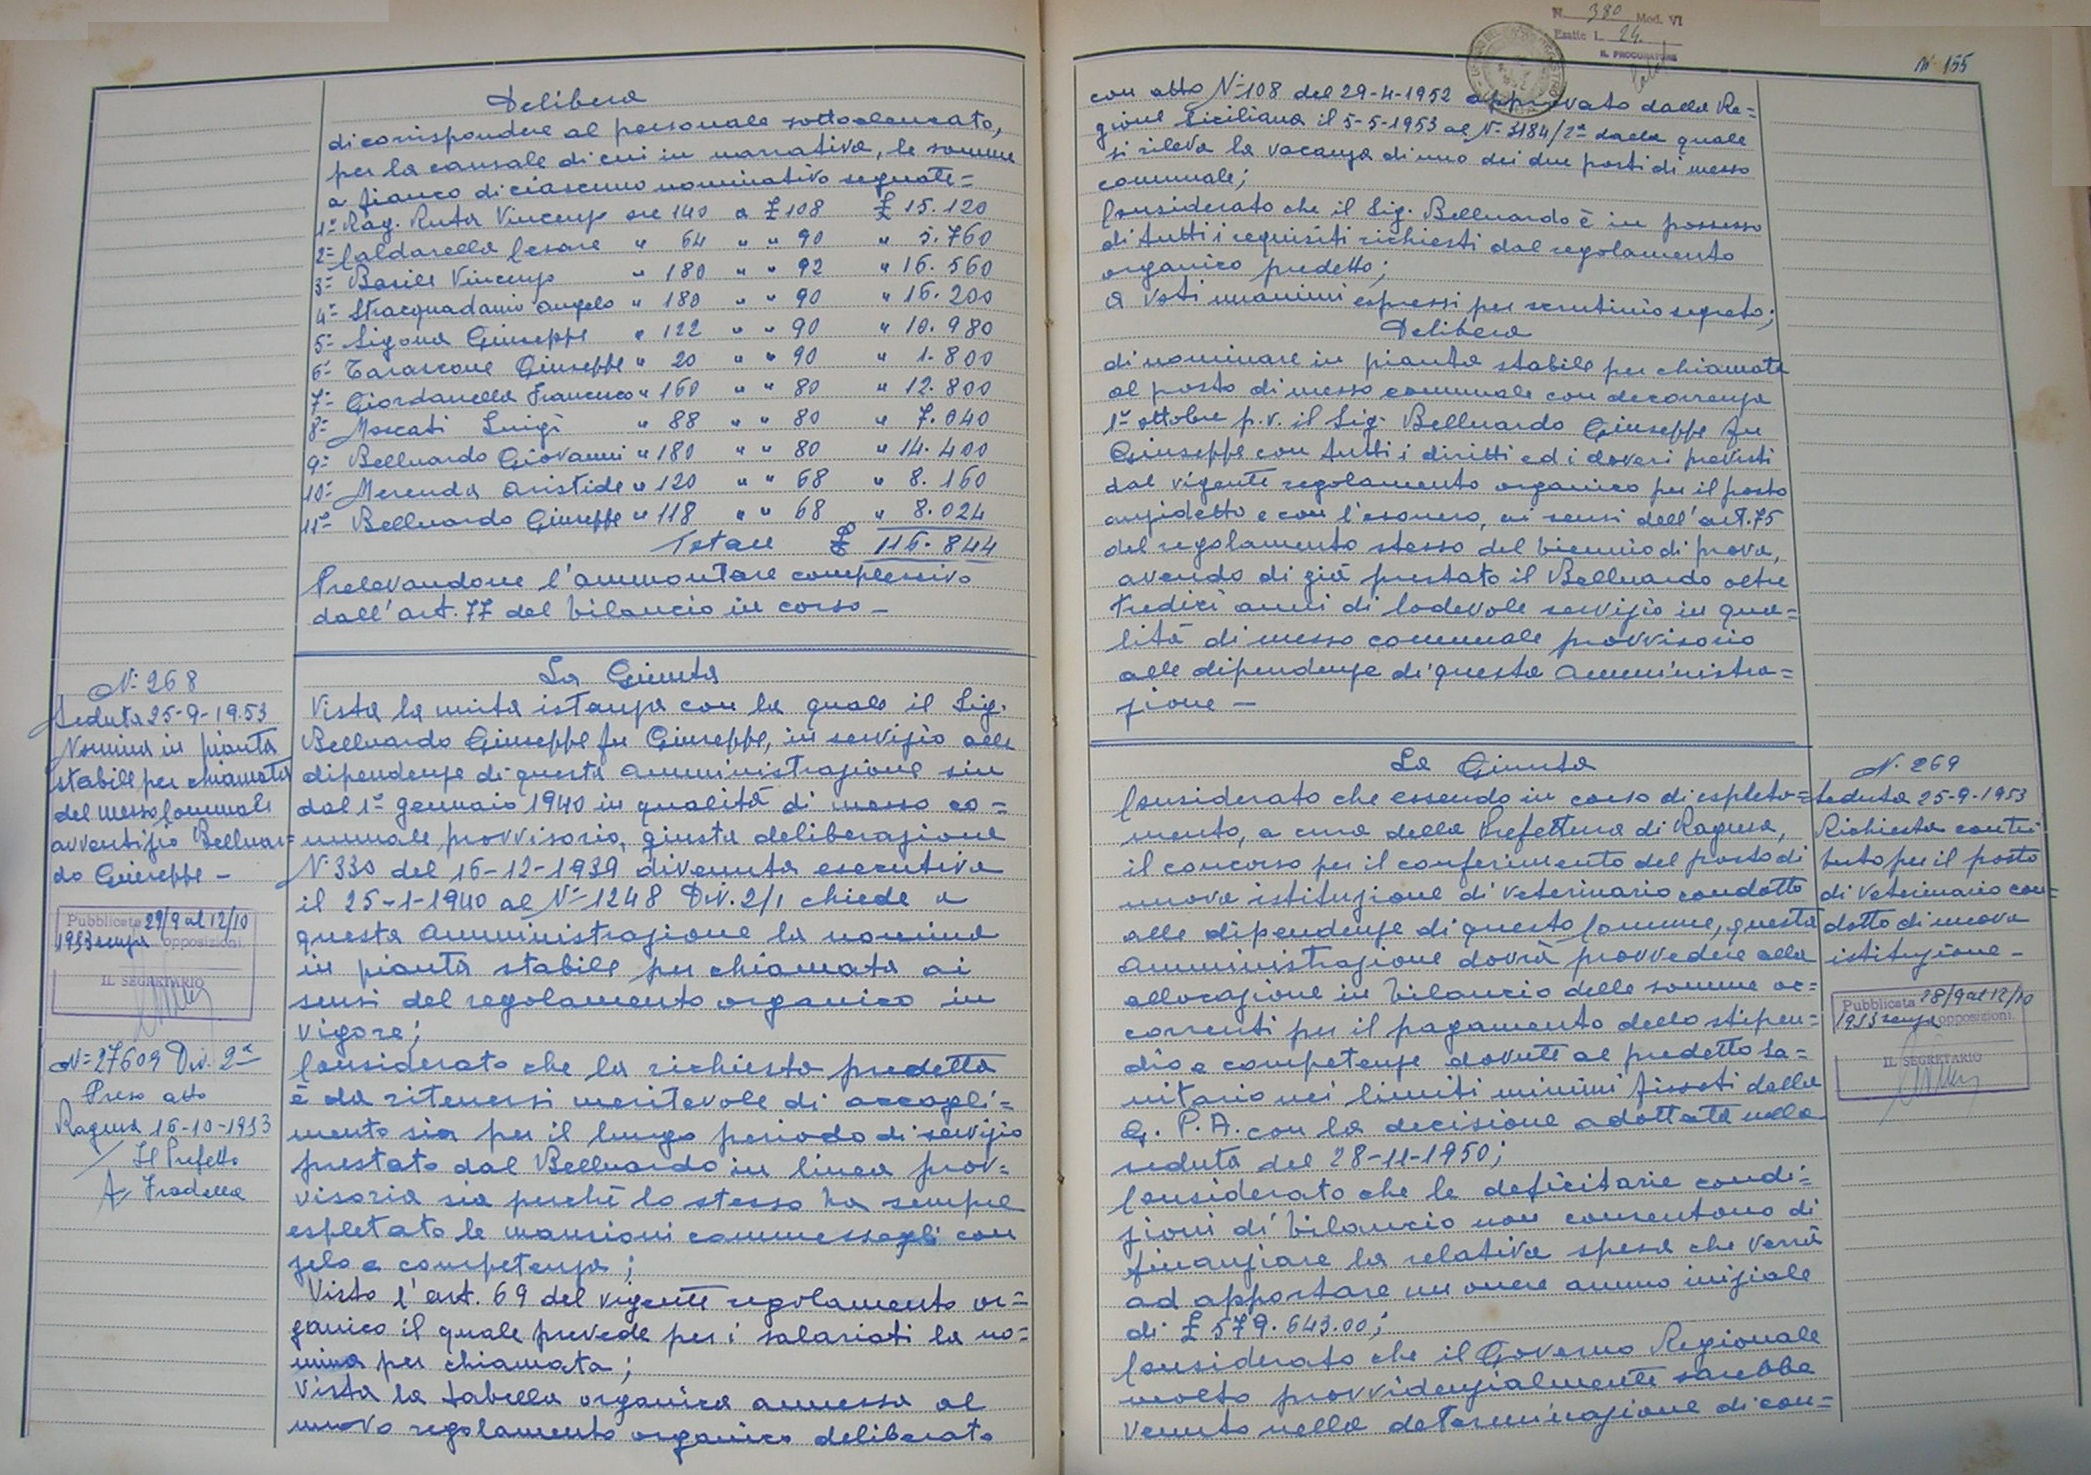 Delibera
di corrispondere al personale sottoelencato,
per la causale di cui in narrativa, le somme
a fianco di ciascuno nominativo segnate=
1= Rag. Ruta Vincenzo ore 140 a £ 108 £ 15.120
2= Caldarella Cesare " 64 " " 90 " 5.760
3= Basile Vincenzo " 180 " " 92 " 16.560
4= Stracquadanio Angelo " 180 " " 90 " 16.200
5= Sigona Giuseppe " 122 " " 90 " 10.980
6= Tarascone Giuseppe " 20 " " 90 " 1.800
7= Giordanella Francesco " 160 " " 80 " 12.800
8= Moscati Luigi " 88 " " 80 " 7.040
9= Belluardo Giovanni " 180 " " 80 " 14.400
10= Merenda Aristide " 120 " " 68 " 8.160
11= Belluardo Giuseppe " 118 " " 68 " 8.024
Totale £ 116.844
Prelevandone l'ammontare complessivo
dall'art. 77 del bilancio in corso _
N. 268
Seduta 25-9-1953
Nomina in pianta
stabile per chiamata
del messo Comunale
avventizio Belluar=
do Giuseppe _
Pubblicata 29/9 al 12/10
1953 senza opposizioni
IL SEGRETARIO
N= 27609 Div. 2a
Preso atto
Ragusa 16-10-1953
Il Prefetto
La Giunta
Vista la unita istanza con la quale il Sig.
Belluardo Giuseppe fu Giuseppe, in servizio alle
dipendenze di questa Amministrazione sin
dal 1= gennaio 1940 in qualità di messo co=
munale provvisorio, giusta deliberazione
N 330 del 16-12-1939 divenuta esecutiva
il 25-1-1940 al N= 1248 Div. 2/1 chiede a
questa Amministrazione la nomina
in pianta stabile per chiamata ai
sensi del regolamento organico in
vigore;
Considerato che la richiesta predetta
è da ritenersi meritevole di accogli=
mento sia per il lungo periodo di servizio
prestato dal Belluardo in linea prov=
visoria sia perché lo stesso ha sempre
espletato le mansioni commessegli con
zelo e competenza;
Visto l'art. 69 del vigente regolamento or=
ganico il quale prevede per i salariati la no=
mina per chiamata;
Vista la tabella organica annessa al
nuovo regolamento organico deliberato
N. 380 Mod. VI
Esatte L. 24.
IL PROCURATORE
N 155
con atto N= 108 del 29-4-1952 approvato dalla Re=
gione Siciliana il 5-5-1953 al N= 3184/2a dalla quale
si rileva la vacanza di uno dei due posti di messo
comunale;
Considerato che il Sig. Belluardo è in possesso
di tutti i requisiti richiesti dal regolamento
organico predetto;
A voti unanimi espressi per scrutinio segreto;
Delibera
di nominare in pianta stabile per chiamata
al posto di messo comunale con decorrenza
1= ottobre p.v. il Sig. Belluardo Giuseppe fu
Giuseppe con tutti i diritti ed i doveri previsti
dal vigente regolamento organico per il posto
anzidetto e con l'esonero, ai sensi dell'art. 75
del regolamento stesso del biennio di prova,
avendo di già prestato il Belluardo oltre
tredici anni di lodevole servizio in qua=
lità di messo comunale provvisorio
alle dipendenze di questa Amministra=
zione _
La Giunta
Considerato che essendo in corso di espleta=
mento, a cura della Prefettura di Ragusa,
il concorso per il conferimento del posto di
nuova istituzione di veterinario condotto
alle dipendenze di questo Comune, questa
Amministrazione dovrà provvedere alla
allocazione in bilancio delle somme oc=
correnti per il pagamento dello stipen=
dio e competenze dovute al predetto Sa=
nitario nei limiti minimi fissati dalla
G. P. A. con la decisione adottata nella
seduta del 28-11-1950;
Considerato che le deficitarie condi=
zioni di bilancio non consentono di
finanziare la relativa spesa che verrà
ad apportare un onere annuo iniziale
di £ 579.643.00;
Considerato che il Governo Regionale
molto provvidenzialmente sarebbe
venuto nella determinazione di con=
N. 269
Seduta 25-9-1953
Richiesta contri
buto per il posto
di Veterinario con=
dotto di nuova
istituzione _
Pubblicata 28/9 al 12/10
1953 senza opposizioni
IL SEGRETARIO